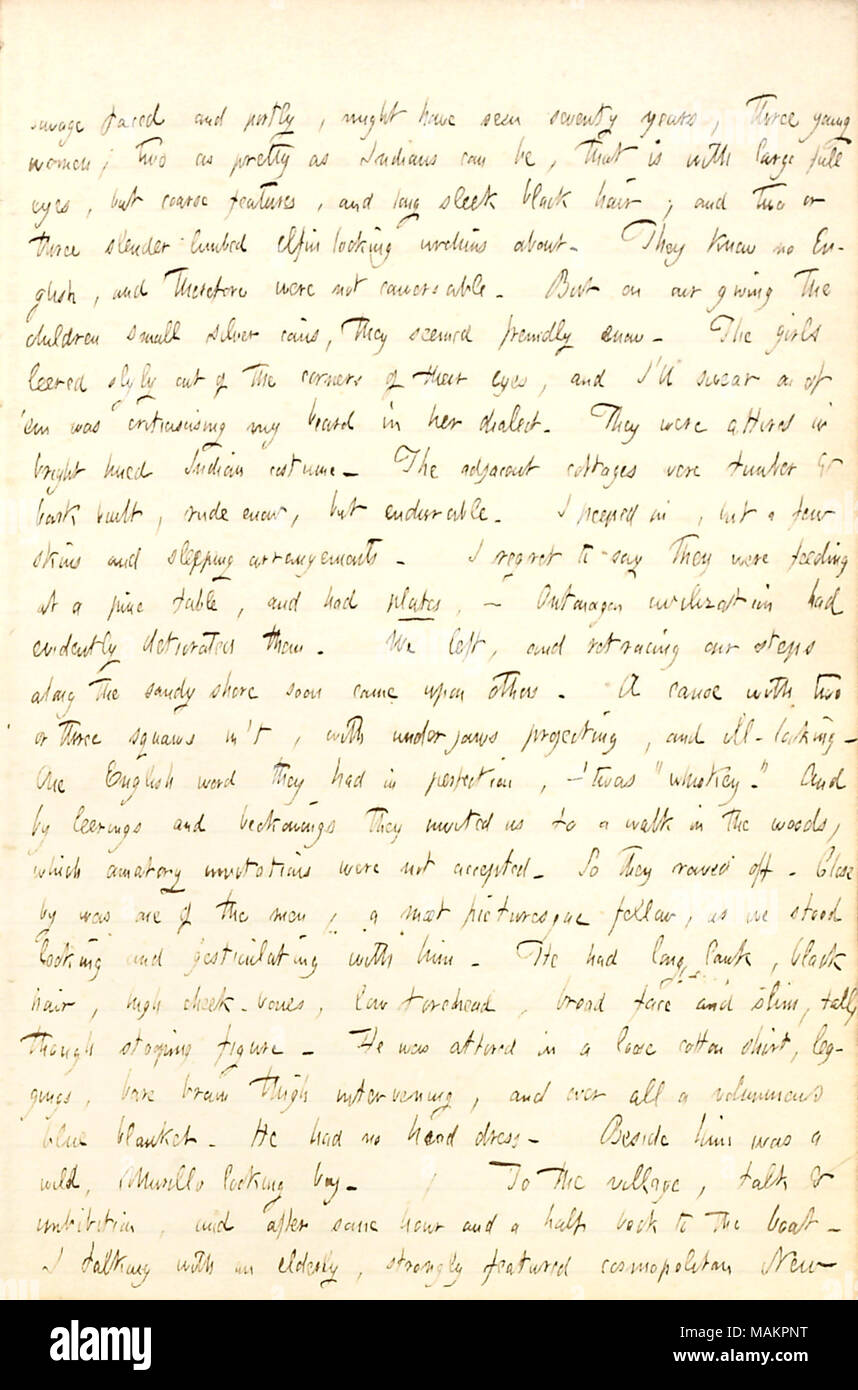 savage faced and portly, might have seen seventy years, three young
women; two as pretty as Indians can be, that is with large full
eyes, but coarse features, and long sleek black hair; and two or
three slender limbed elfin looking urchins about. They knew no En-
glish, and therefore were not conversable. But on our giving the
children small silver coins, they seemed friendly enow. The girls
leered slyly out of the corners of their eyes, and I'll swear one of
'em was criticising my beard in her dialect. They were attired in
bright hued Indian costume. The adjacent cottages were timber &
bark built, rude enow, but endurable. I peeped in, but a few
skins and sleeping arrangements. I regret to say they were feeding
at a pine table, and had plates, — Ontonagon civilization had
evidently deteriorated them. We left, and retracing our steps
along the sandy shore soon came upon others. A canoe with two
or three squaws in't, with under jaws projecting, and ill-looking.
One English word they had in perfection, — 'twas "whiskey." And
by leerings and beckonings they invited us to a walk in the woods,
which amatory invitations were not accepted. So they rowed off. Close
by was one of the men, a most picturesque fellow, as we stood
looking and gesticulating with him. He had long, lank, black
hair, high cheek-bones, low forehead, broad face and slim, tall,
though stooping figure. He was attired in a loose cotton shirt, leg-
gings, bare brown thigh intervening, and over all a voluminous
blue blanket. He had no head dress. Beside him was a
wild, Murillo looking boy. / To the village, talk &
imbibition, and after some hour and a half back to the boat.
I talking with an elderly, strongly featured cosmopolitan New
alamy
Image ID: MAKPNT
www.alamy.com